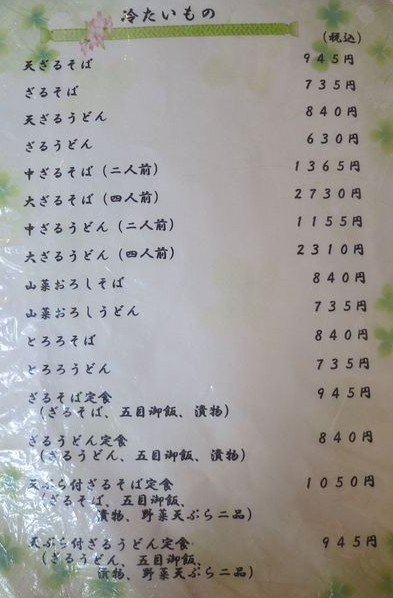 冷たいもの
(税込)
天ざるそば 945円
ざるそば 735円
天ざるうどん 840円
ざるうどん 630円
中ざるそば(二人前) 1365円
大ざるそば(四人前) 2730円
中ざるうどん(二人前) 1155円
大ざるうどん(四人前) 2310円
山菜おろしそば 840円
山菜おろしうどん 735円
とろろそば 840円
とろろうどん 735円
ざるそば定食 945円
(ざるそば、五目御飯、漬物)
ざるうどん定食 840円
(ざるうどん、五目御飯、漬物)
天ぷら付ざるそば定食 1050円
(ざるそば、五目御飯、
漬物、野菜天ぷら二品)
天ぷら付ざるうどん定食 945円
(ざるうどん、五目御飯、
漬物、野菜天ぷら二品)